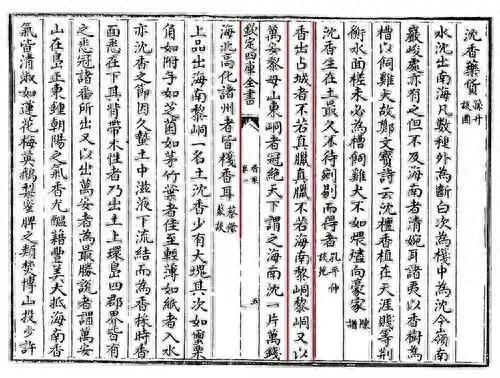 沈香藥
水沈出南海凡數種外為斷白次為棧中為沈今嶺南
巖峻處亦有之但不及海南者清婉耳諸夷以香樹為
槽以飼雞犬故鄭文寶詩云沈檀香植在天涯賤等荆
衡水面槎未必為槽飼雞犬不如煨爐向豪家陳譜
沈香生在土最久不待剜剔而得者孔平仲談苑
香出占城者不若真臘真臘不若海南黎峒黎峒又以
萬安黎母山東峒者冠絕天下謂之海南沈一片萬錢
欽定四庫全書
香乘
卷一
五
海北高化諸州者皆棧香耳蔡絛叢談
上品出海南黎峒一名土沈香少有大塊其次如蠒栗
角如附子如芝菌如茅竹葉者佳至輕薄如紙者入水
亦沈香之節因久蟄土中滋液下流結而為香採時香
面悉在下其背帶木性者乃出土上環島四郡界皆有
之悉冠諸番所出又以出萬安者為最勝說者謂萬安
山在島正東鍾朝陽之氣香尤醞藉豐美大抵海南香
氣皆清淑如蓮花梅英鵝梨蜜脾之類焚博山投少許